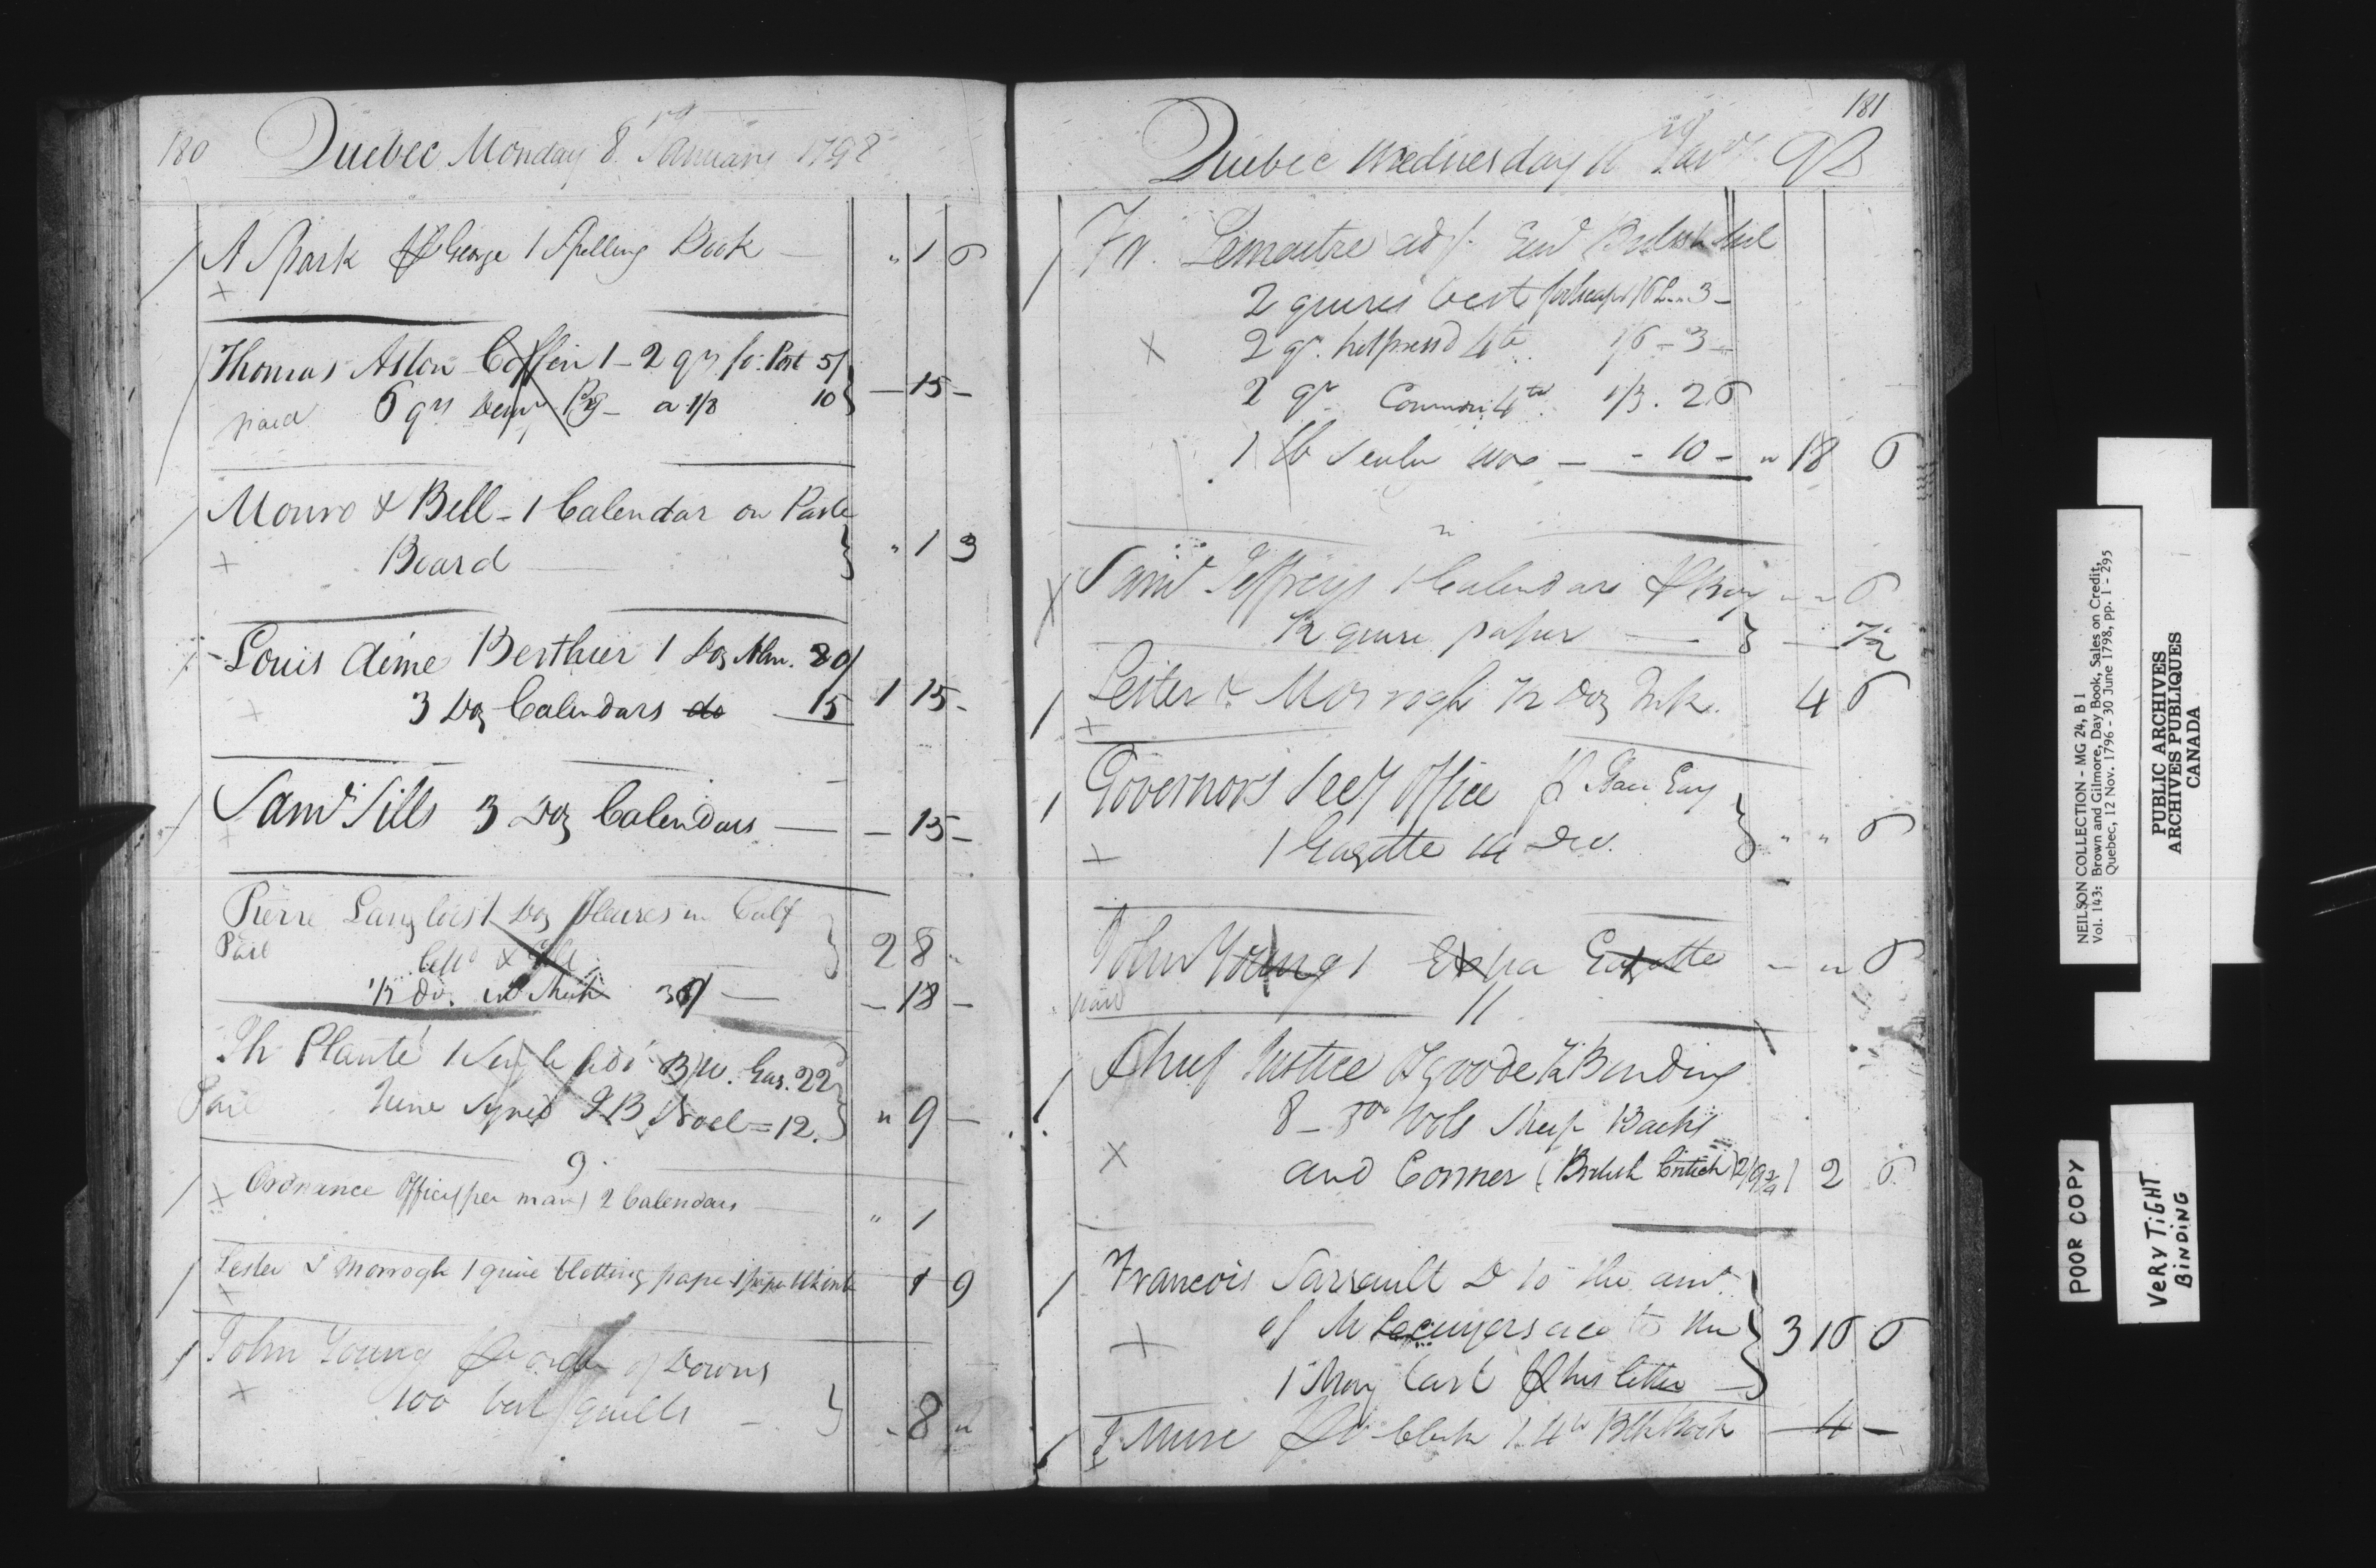 180 Quebec Monday 8 January 1798
A Spark George 1 Spelling Book — " 1 6
Thomas Aston Coffin 1 - 2 qrs fo. Post 5/
paid 6 qrs a 1/8 10 } — 15 —
Monro & Bell - 1 Calendar on Paste
Board } " 1 3
Louis Aimé Berthier 1 Doz Alm. 20/
3 Doz Calendars do 15 1 15 -
Saml Sills 3 Doz Calendars — — 15 —
Pierre Langlois 1 Doz Heures in Calf
Paid } 2 8 "
1/2 do. 36/ — — 18 —
Th Plante 1 Gaz. 22
Paid June signed J B Noel = 12. } " 9 —
9
Ordnance Office (per man) 2 Calendars " 1
Lester & Morrogh 1 quire blotting pape 1 9
John Young order of Downs
100 best quills - } " 8 "
181
Quebec Wednesday 98
Fr. Lemaitre adj. British
2 quires best 3 —
2 qr. hotpress'd 4to 1/6 - 3 —
2 qr Common 4to 1/3 . 2 6
1 lb — - 10 - " 18 6
Saml Jeffreys 1 Calendar " " 6
1/2 quire paper — } — 7 1/2
Lester & Morrogh 1/2 Doz Ink. 4 6
Governors Secy Office
1 Gazette 14 Dec. } " " 6
John Young 1 Extra Gazette - " 6
paid 11
Chief Justice Osgoode Binding
8 - 8vo Vols Sheep Backs
and Corner (British Critick) 2/9 3/4 1 2 6
Francois Sarrault D to the amt.
of M Lecuyers acc to the } 3 16 6
1 May last his letter
Mure Clerk 1. 4to Blk Book — 4 —
NEILSON COLLECTION - MG 24, B 1
Vol. 143: Brown and Gilmore, Day Book, Sales on Credit,
Quebec, 12 Nov. 1796 - 30 June 1798, pp. 1 - 295
PUBLIC ARCHIVES
ARCHIVES PUBLIQUES
CANADA
POOR COPY
VERY TIGHT
BINDING